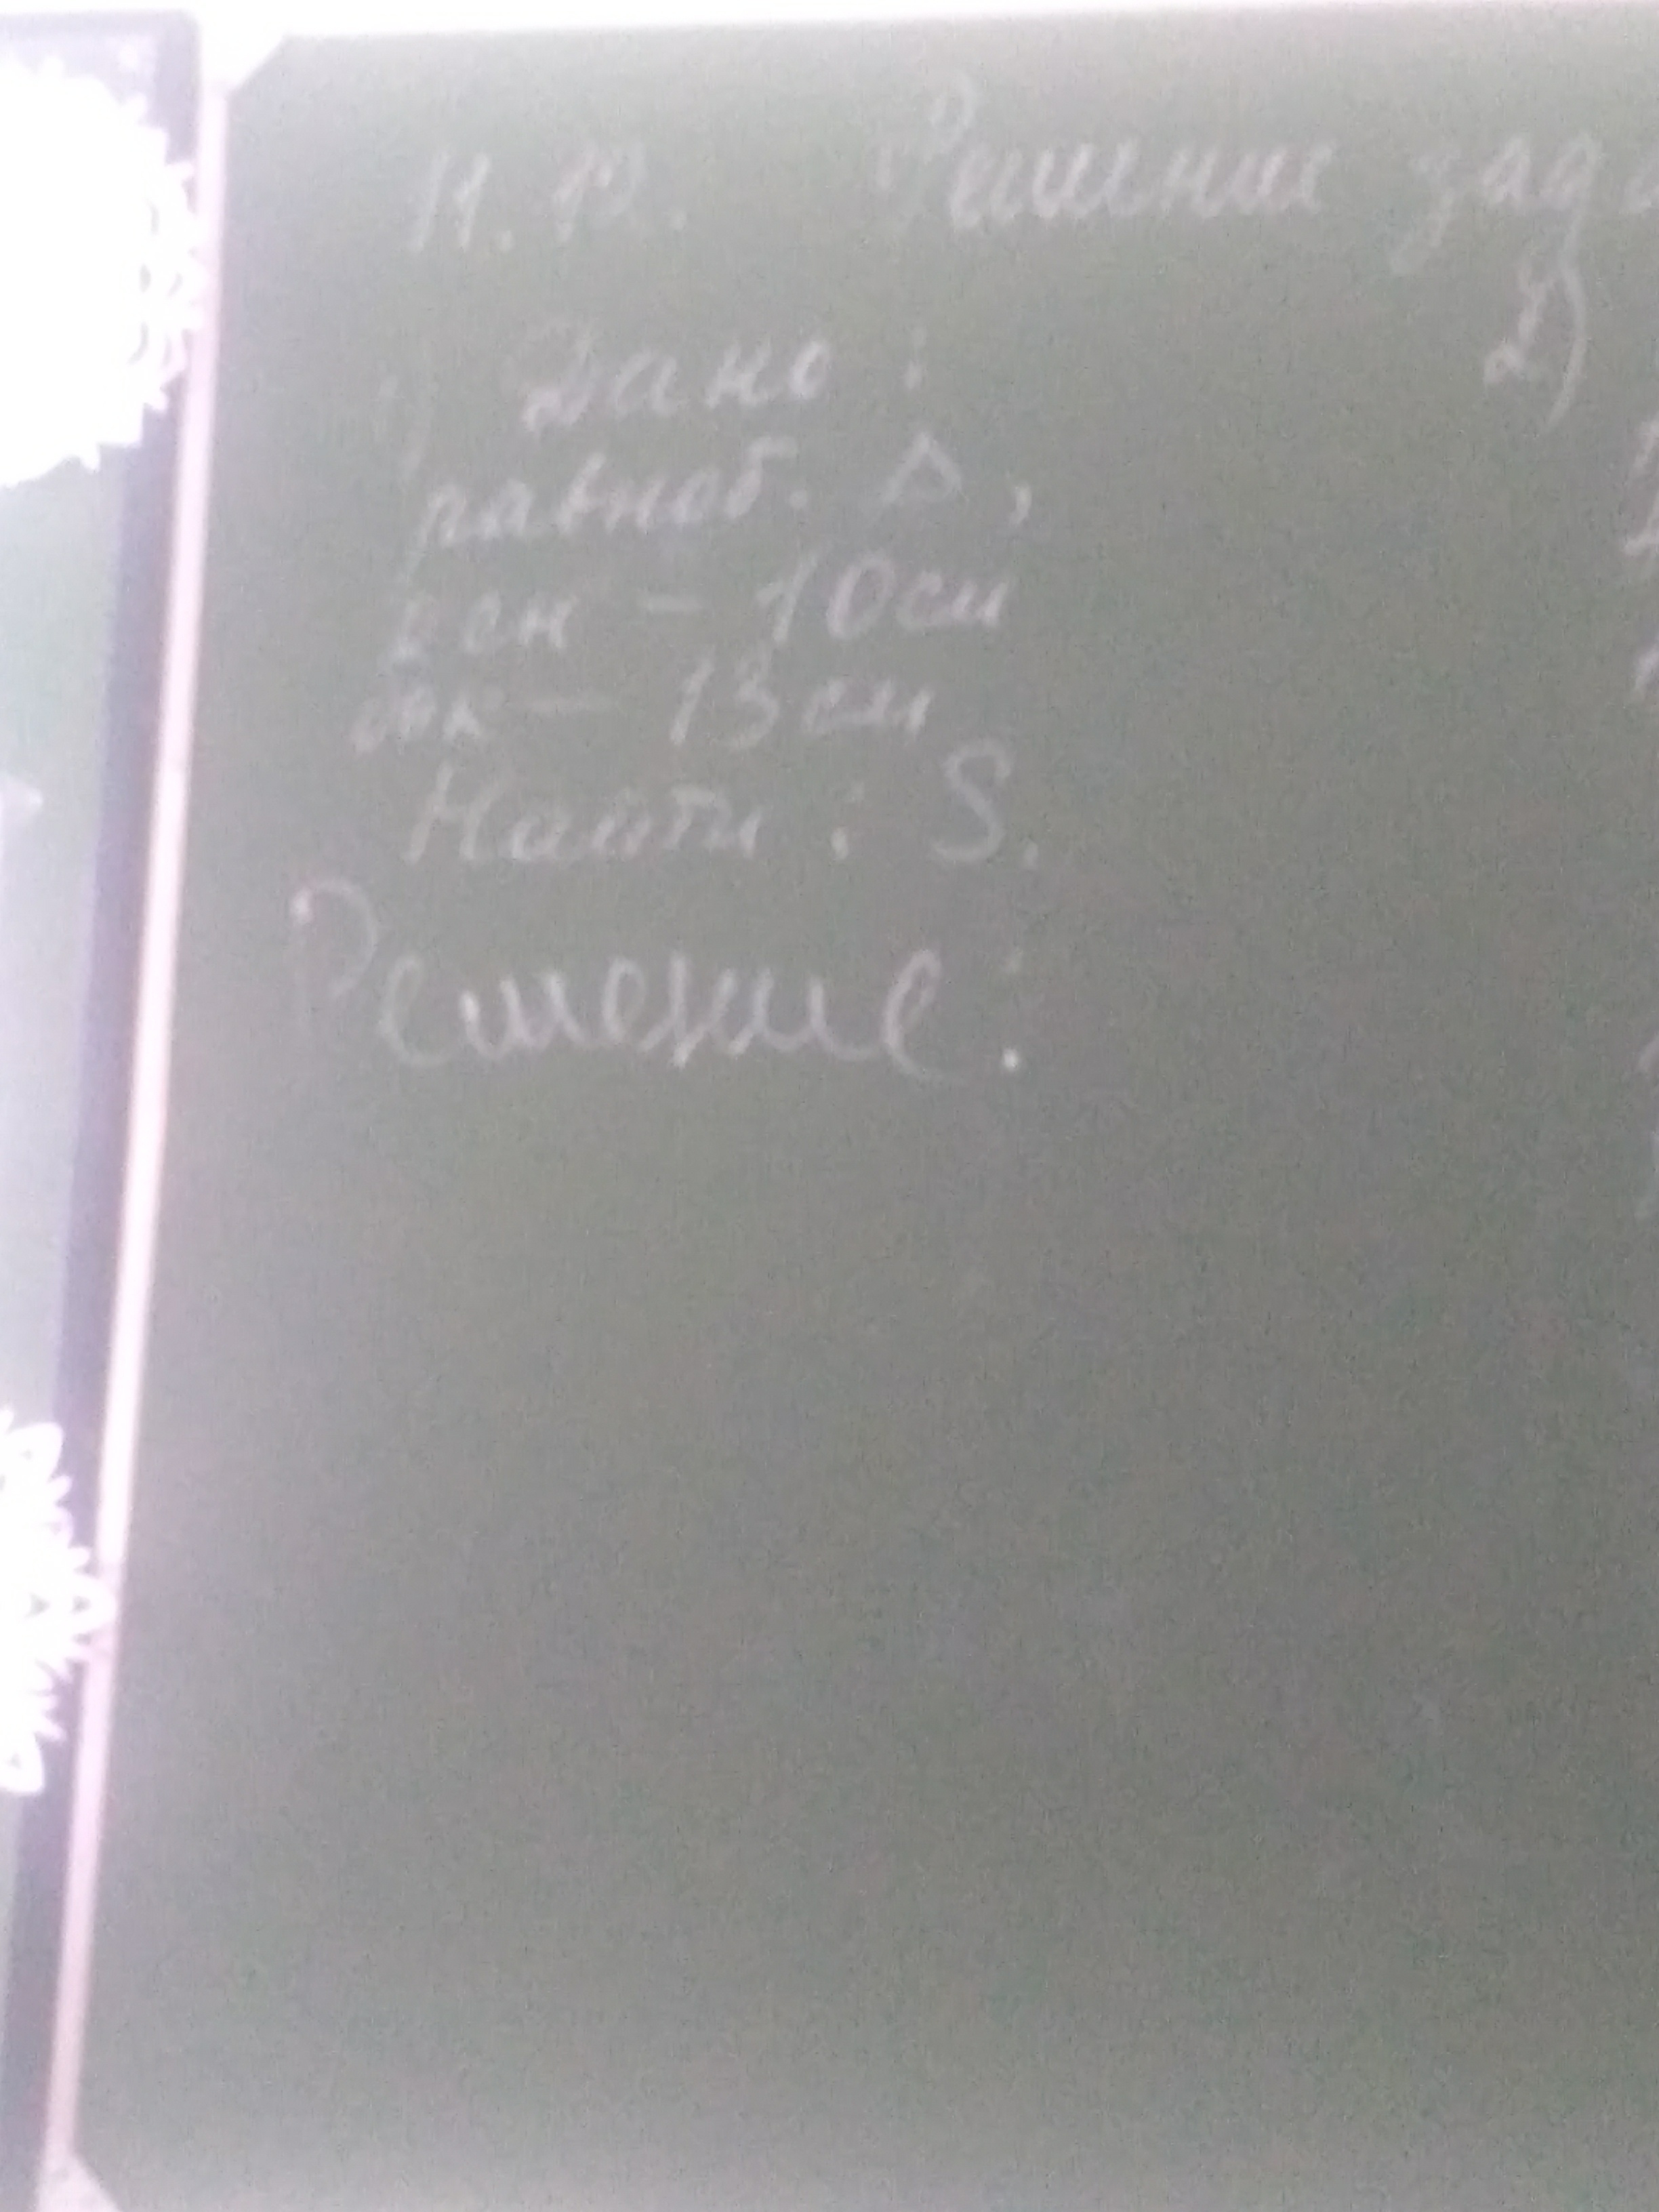 11.12. Решение зад
1) Дано: 2)
равноб. Δ,
осн - 10см
бок - 13см
Найти: S.
Решение: